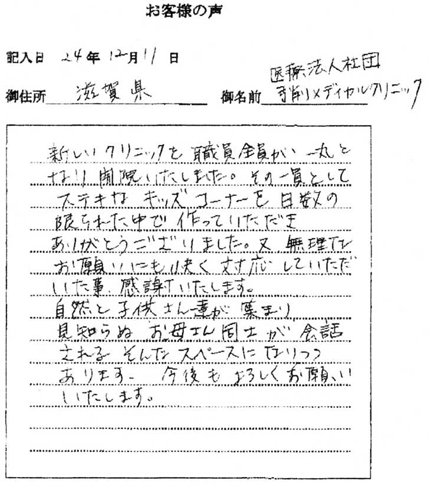 お客様の声
記入日 24年12月11日
御住所 滋賀県 御名前 医療法人社団
弓削メディカルクリニック
新しいクリニックを職員全員が一丸と
なり開院いたしました。その一員として
ステキなキッズコーナーを日数の
限られた中で作っていただき
ありがとうございました。又無理な
お願いにも快く対応していただ
いた事、感謝いたします。
自然と子供さん達が集まり
見知らぬお母さん同士が会話
されるそんなスペースになりつつ
あります。今後もよろしくお願い
いたします。